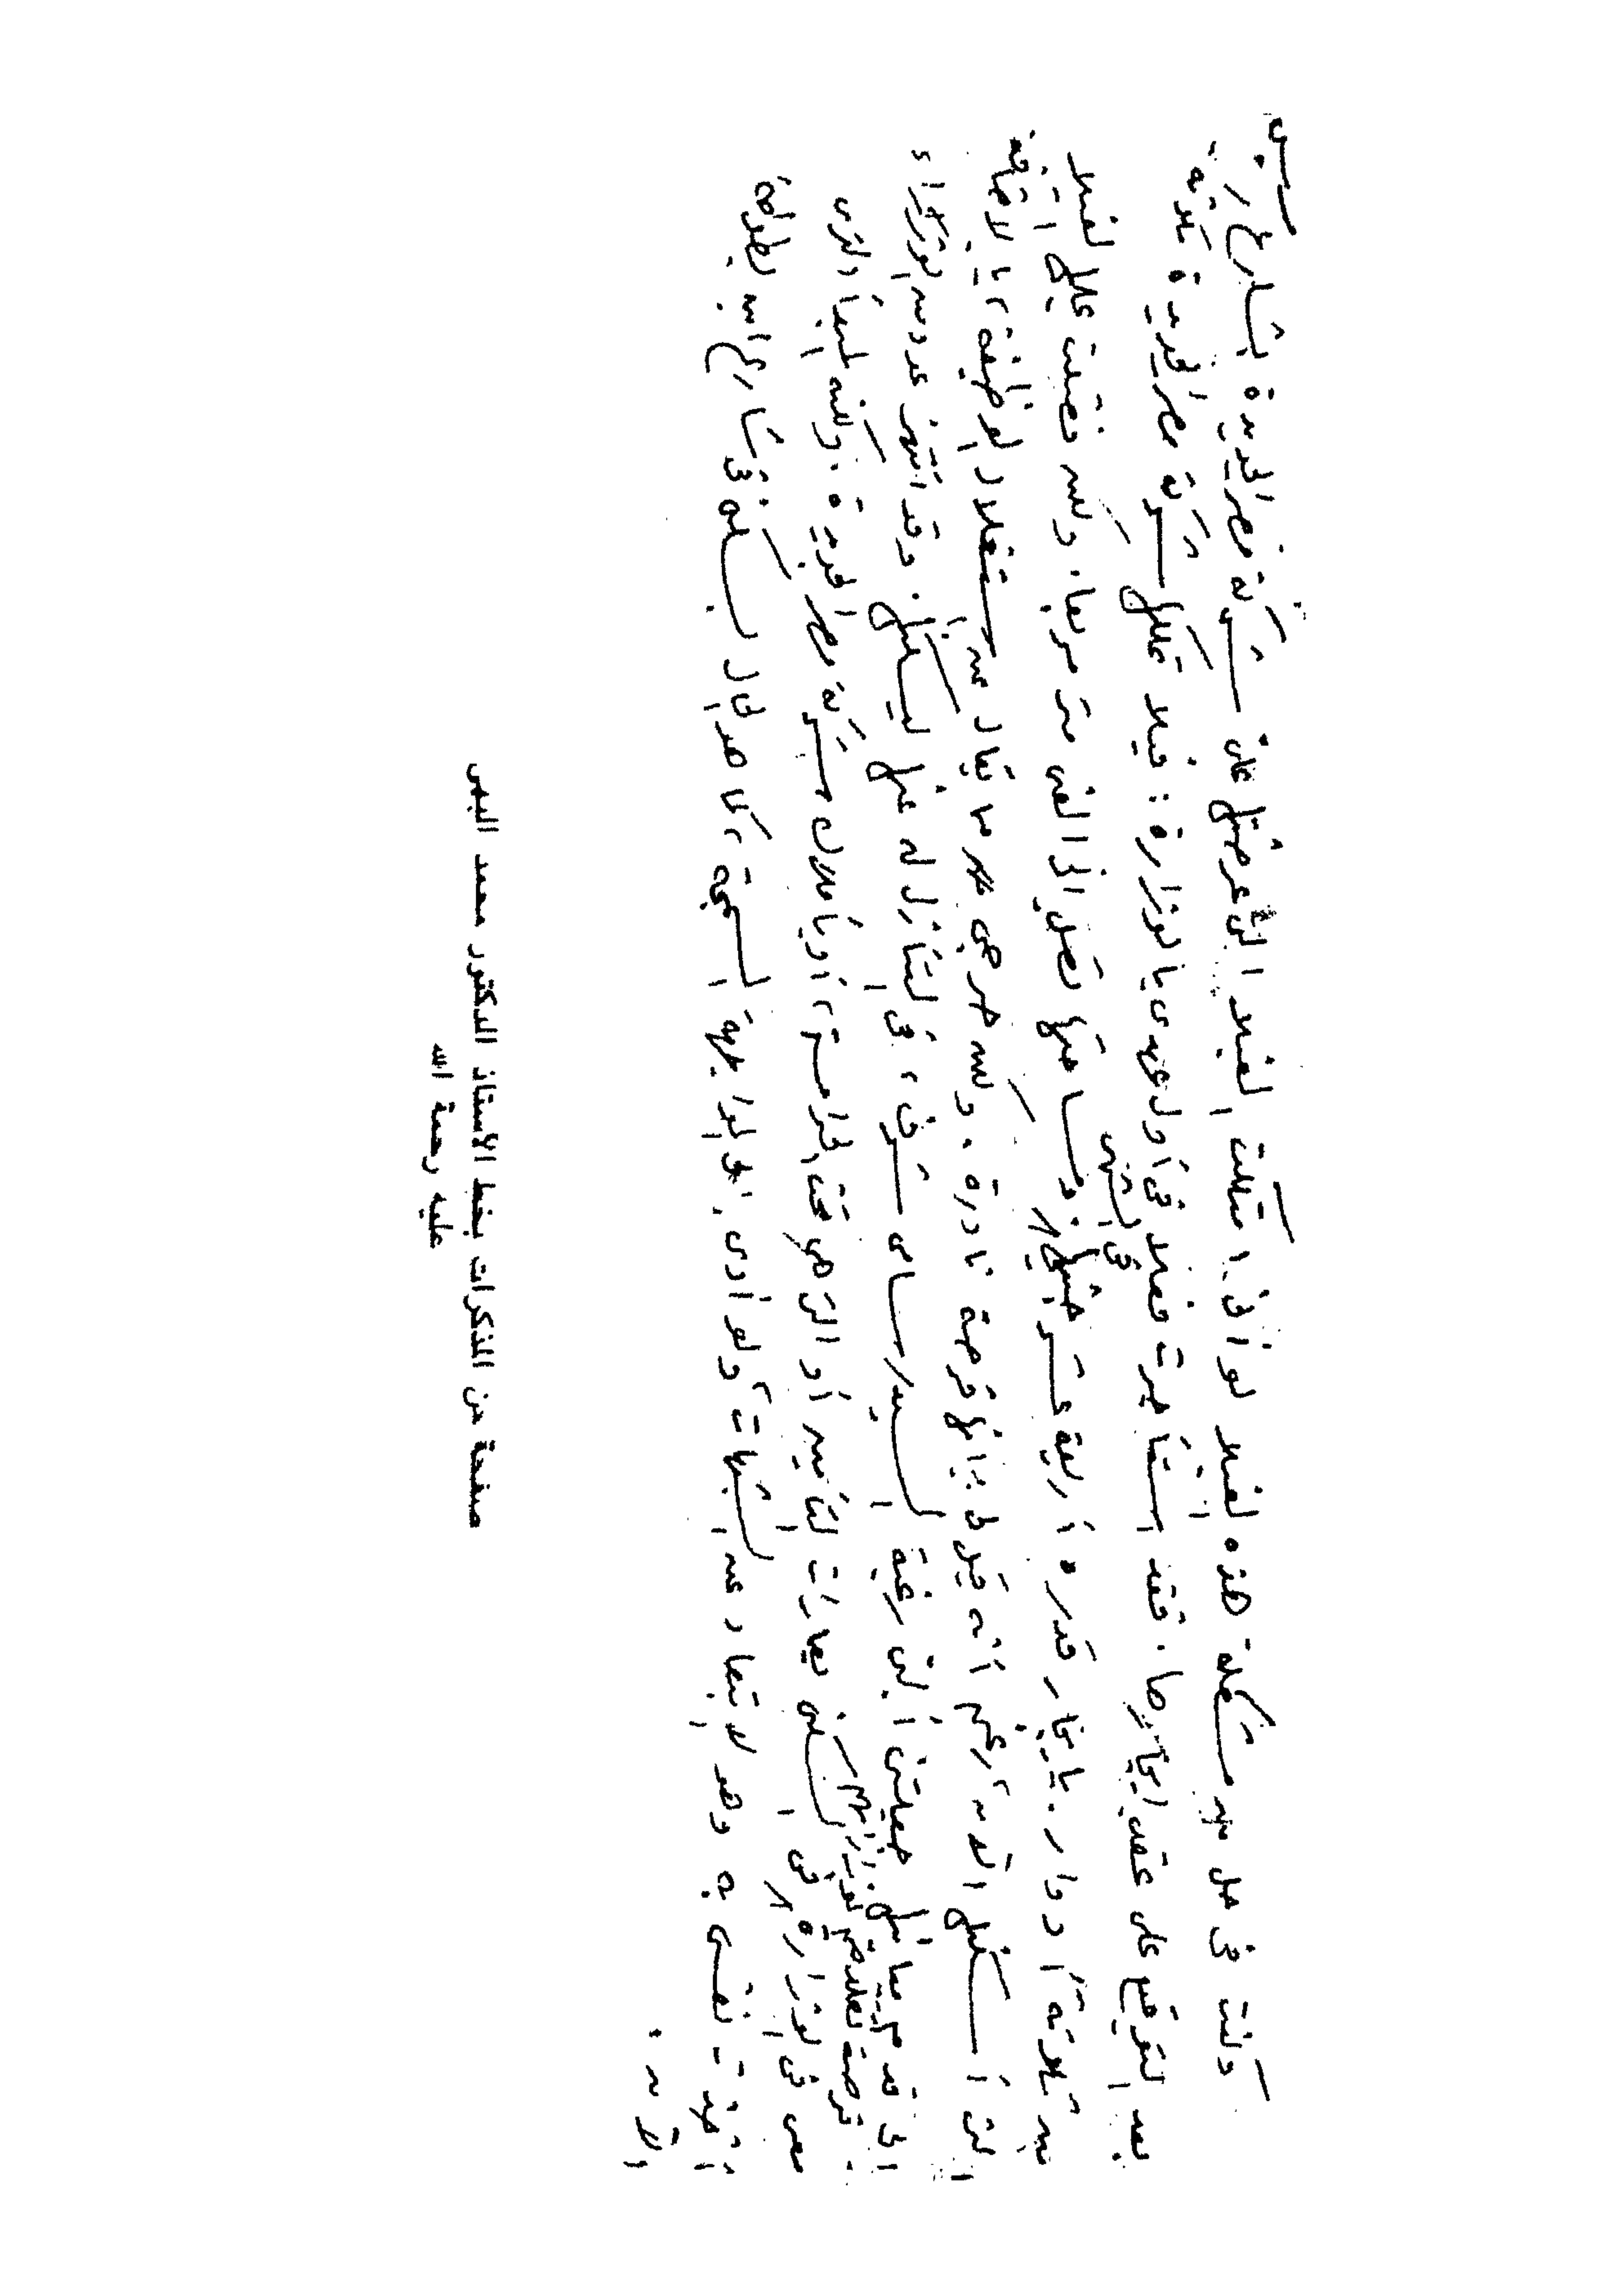 وكنت فى حل من مشكلة هذه الفيلا لو أنى امتلكت الفيلا التى عرضتها على شركة مصر الجديدة بشارع رمسيس
بعد التوقيع على عقد إيجارها. فقد استأجرت فعلا فى أول عهدى بالوزارة: فيلا تملكها شركة مصر الجديدة مكونة
من ثلاثة أدوار. بإيجار قدره أربعة عشر جنيها فى الشهر ومساحتها تصل إلى ألفى متر مربعا. ولكن فضلت عليها الفيلا
التى أسكنها الآن رغم أنه قيل لى: إنها فرصة نادرة. ولكن حرصى على ما يقال عن استغلال الوظيفة بالإضافة
إلى قدم مبانيها جعلتنى ألبى رغبة السيد/ سامى شرف، فى التنازل له عنها ليسكنها. وقد انتهز عدد من الوزراء
فرصة علاقتهم بوزاراتهم
معى فى الوزارة فى السكنى بعمارات التأمين أو التى هى تحت الحراسة، أو بأملاك شركة مصر الجديدة. ولكنه المبدأ الذى
أخذت نفسى به وهو الابتعاد عن الشبهات ولو أدى إلى مواجهة السمعة، كما هو الحال بسكنى فى شارع ابن بطوطة
الآن.
صفحة من المذكرات بخط الأستاذ الدكتور محمد البهى
عليه رحمة الله